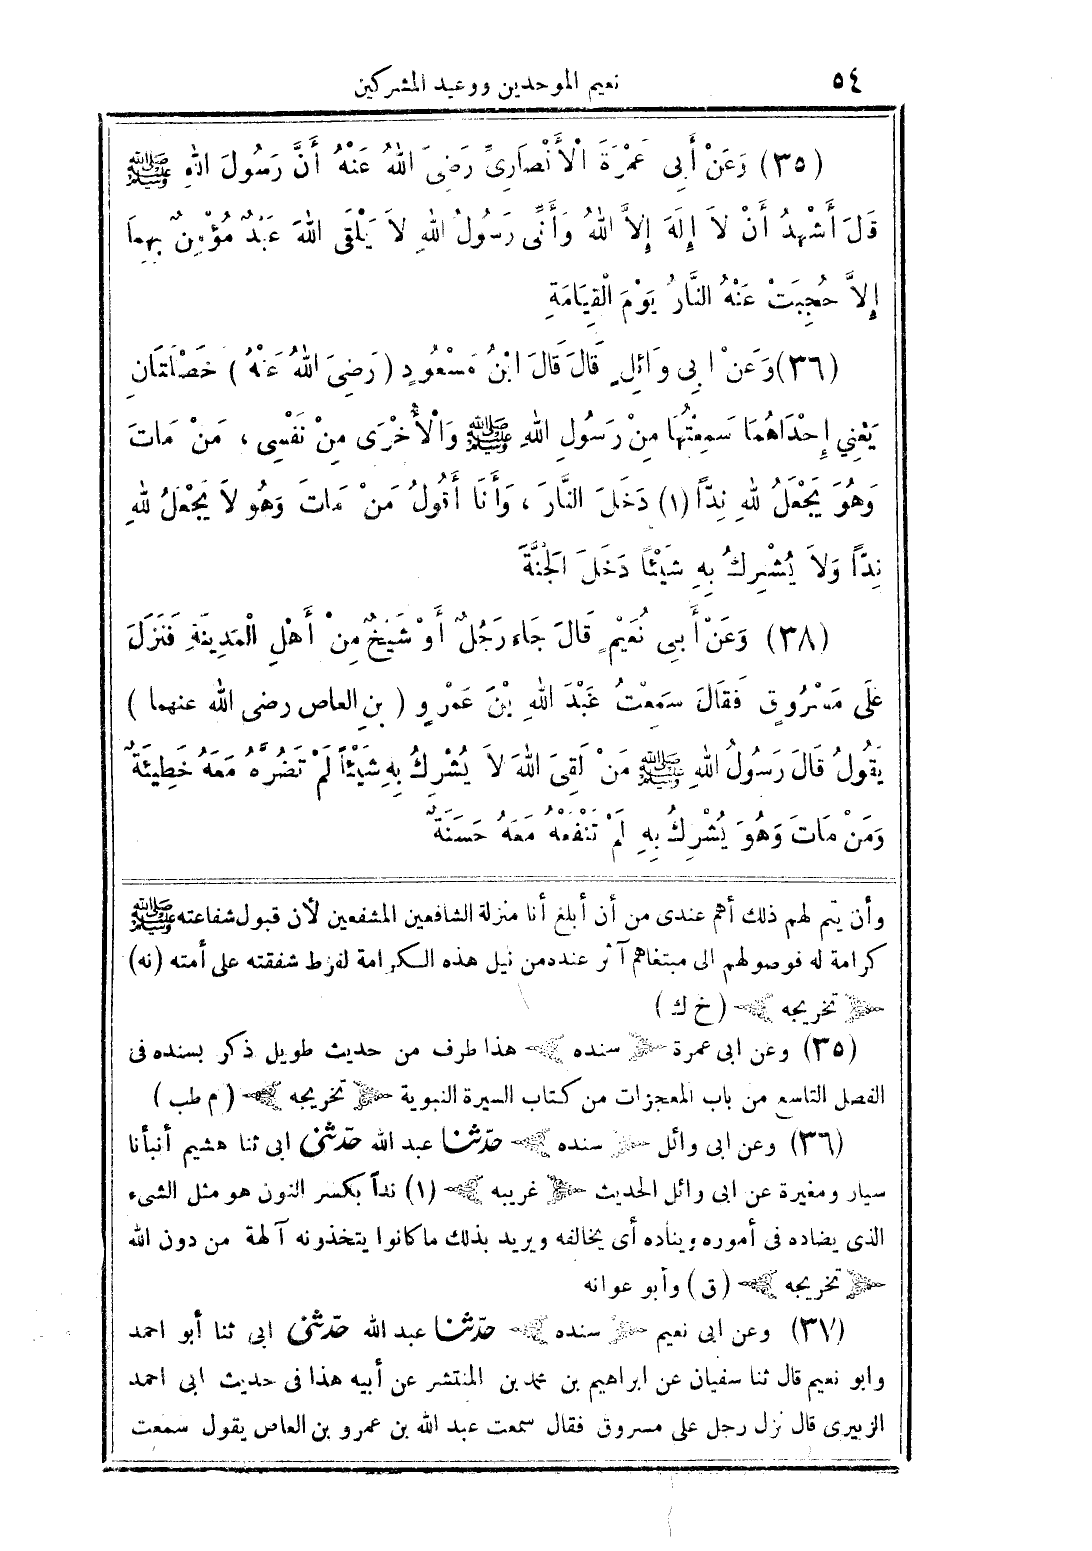 ٥٤
نعيم الموحدين ووعيد المشركين
(٣٥) وَعَنْ أَبِى عَمْرَةَ الْأَنْصَارِىِّ رَضِىَ اللهُ عَنْهُ أَنَّ رَسُولَ اللهِ ﷺ
قَلَ أَشْهَدُ أَنْ لاَ إِلَهَ إِلاَّ اللهُ وَأَنِّى رَسُولُ اللهِ لاَ يَلْقَى اللهَ عَبْدٌ مُؤْمِنٌ بِهِمَا
إِلاَّ حُجِبَتْ عَنْهُ النَّارُ يَوْمَ الْقِيَامَةِ
(٣٦) وَعَنْ ابِى وَائِلٍ قَالَ قَالَ ابْنُ مَسْعُودٍ (رَضِىَ اللهُ عَنْهُ) خَصْلَتَانِ
يَعْنِي إِحْدَاهُمَا سَمِعْتُهَا مِنْ رَسُولِ اللهِ ﷺ وَالْأُخْرَى مِنْ نَفْسِى، مَنْ مَاتَ
وَهُوَ يَجْعَلُ لِلهِ نِدًّا (١) دَخَلَ النَّارَ، وَأَنَا أَقُولُ مَنْ مَاتَ وَهُو لاَ يَجْعَلُ لِلهِ
نِدًّا وَلاَ يُشْرِكُ بِهِ شَيْئًا دَخَلَ الْجَنَّةَ
(٣٨) وَعَنْ أَبِى نُعَيْمٍ قَالَ جَاءَ رَجُلٌ أَوْ شَيْخٌ مِنْ أَهْلِ الْمَدِينَةِ فَنَزَلَ
عَلَى مَسْرُوقٍ فَقَالَ سَمِعْتُ عَبْدَ اللهِ بْنَ عَمْرٍو (بن العاص رضى الله عنهما)
يَقُولُ قَالَ رَسُولُ اللهِ ﷺ مَنْ لَقِىَ اللهَ لاَ يُشْرِكُ بِهِ شَيْئًا لَمْ تَضُرَّهُ مَعَهُ خَطِيئَةٌ
وَمَنْ مَاتَ وَهُوَ يُشْرِكُ بِهِ لَمْ تَنْفَعْهُ مَعَهُ حَسَنَةٌ
وأن يتم لهم ذلك أهم عندى من أن أبلغ أنا منزلة الشافعين المشفعين لأن قبول شفاعته ﷺ
كرامة له فوصولهم الى مبتغاهم آثر عنده من نيل هذه الكرامة لفرط شفقته على أمته (نه)
﴿ تخريجه ﴾ (خ ك)
(٣٥) وعن ابى عمرة ﴿ سنده ﴾ هذا طرف من حديث طويل ذكر بسنده فى
الفصل التاسع من باب المعجزات من كتاب السيرة النبوية ﴿ تخريجه ﴾ (م طب)
(٣٦) وعن ابى وائل ﴿ سنده ﴾ حدّثنا عبد الله حدّثنى ابى ثنا هشيم أنبأنا
سيار ومغيرة عن ابى وائل الحديث ﴿ غريبه ﴾ (١) نداً بكسر النون هو مثل الشىء
الذى يضاده فى أموره ويناده أى يخالفه ويريد بذلك ما كانوا يتخذونه آلهة من دون الله
﴿ تخريجه ﴾ (ق) وأبو عوانه
(٣٧) وعن ابى نعيم ﴿ سنده ﴾ حدّثنا عبد الله حدّثنى ابى ثنا أبو احمد
وابو نعيم قال ثنا سفيان عن ابراهيم بن محمد بن المنتشر عن أبيه هذا فى حديث ابى احمد
الزبيرى قال نزل رجل على مسروق فقال سمعت عبد الله بن عمرو بن العاص يقول سمعت